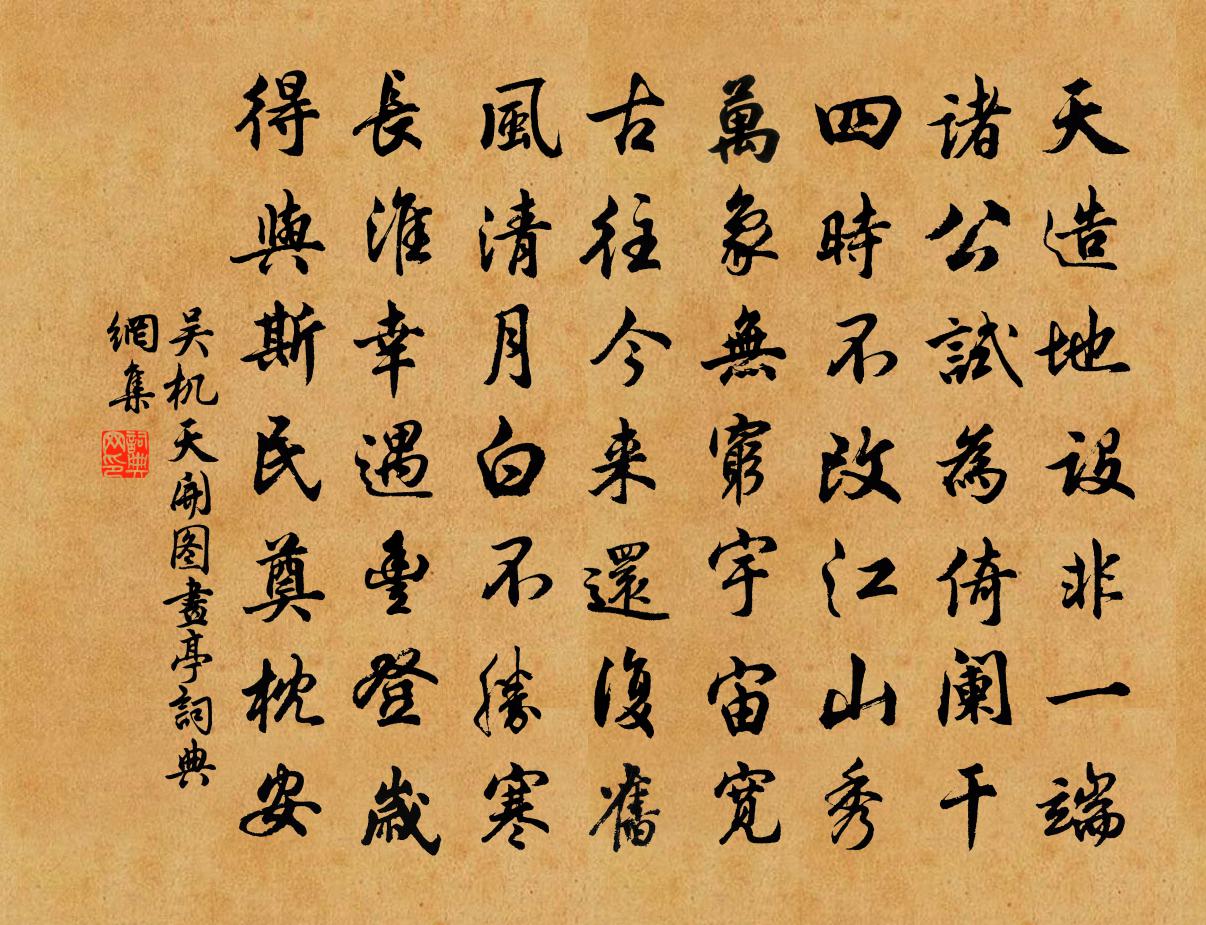 天造地設非一端
諸公試為倚闌干
四時不改江山秀
萬象無窮宇宙寬
古往今来還復舊
風清月白不勝寒
長淮幸遇豐登歲
得與斯民奠枕安
吴机天開图畫亭詞典
網集
詞典网印